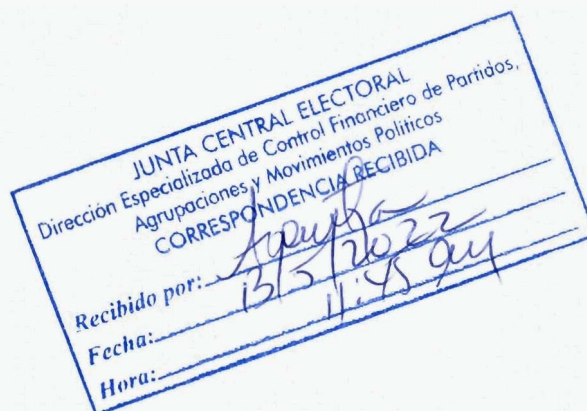 JUNTA CENTRAL ELECTORAL
Dirección Especializada de Control Financiero de Partidos,
Agrupaciones y Movimientos Políticos
CORRESPONDENCIA RECIBIDA
Recibido por:
Fecha: 13/5/2022
Hora: 11:45 am